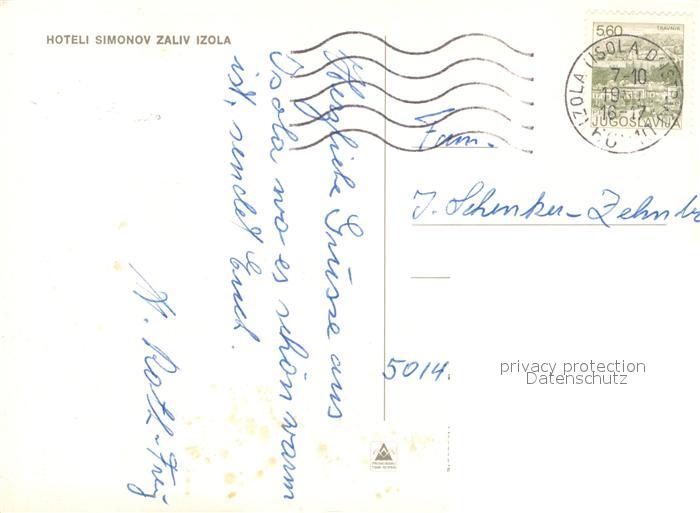 HOTELI SIMONOV ZALIV IZOLA
Herzliche Grüsse aus
Isola wo es schön warm
ist, sendet Euch.
H. Roth-Frey
Fam.
J. Schenker-Zehnder
5014.
privacy protection
Datenschutz
TRAVNIK
5.60
JUGOSLAVIJA
IZOLA ISOLA D'ISTRIA
7-10
16-17